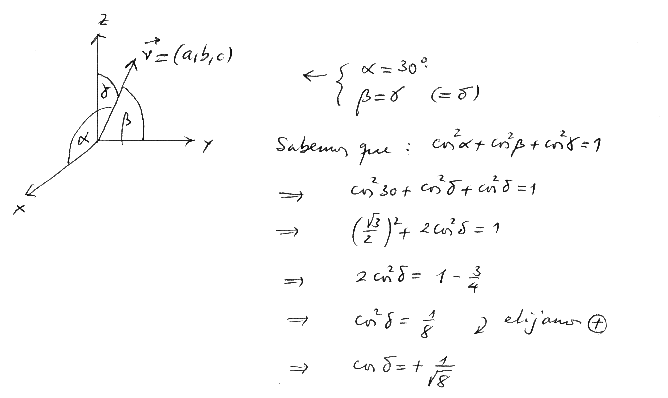 Z
v⃗ = (a,b,c)
γ
α
β
Y
X
← { α = 30º
β = γ (= δ)
Sabemos que : cos²α + cos²β + cos²γ = 1
⇒ cos²30 + cos²δ + cos²δ = 1
⇒ (√3/2)² + 2cos²δ = 1
⇒ 2cos²δ = 1 - 3/4
⇒ cos²δ = 1/8 elijamos ⊕
⇒ cos δ = + 1/√8